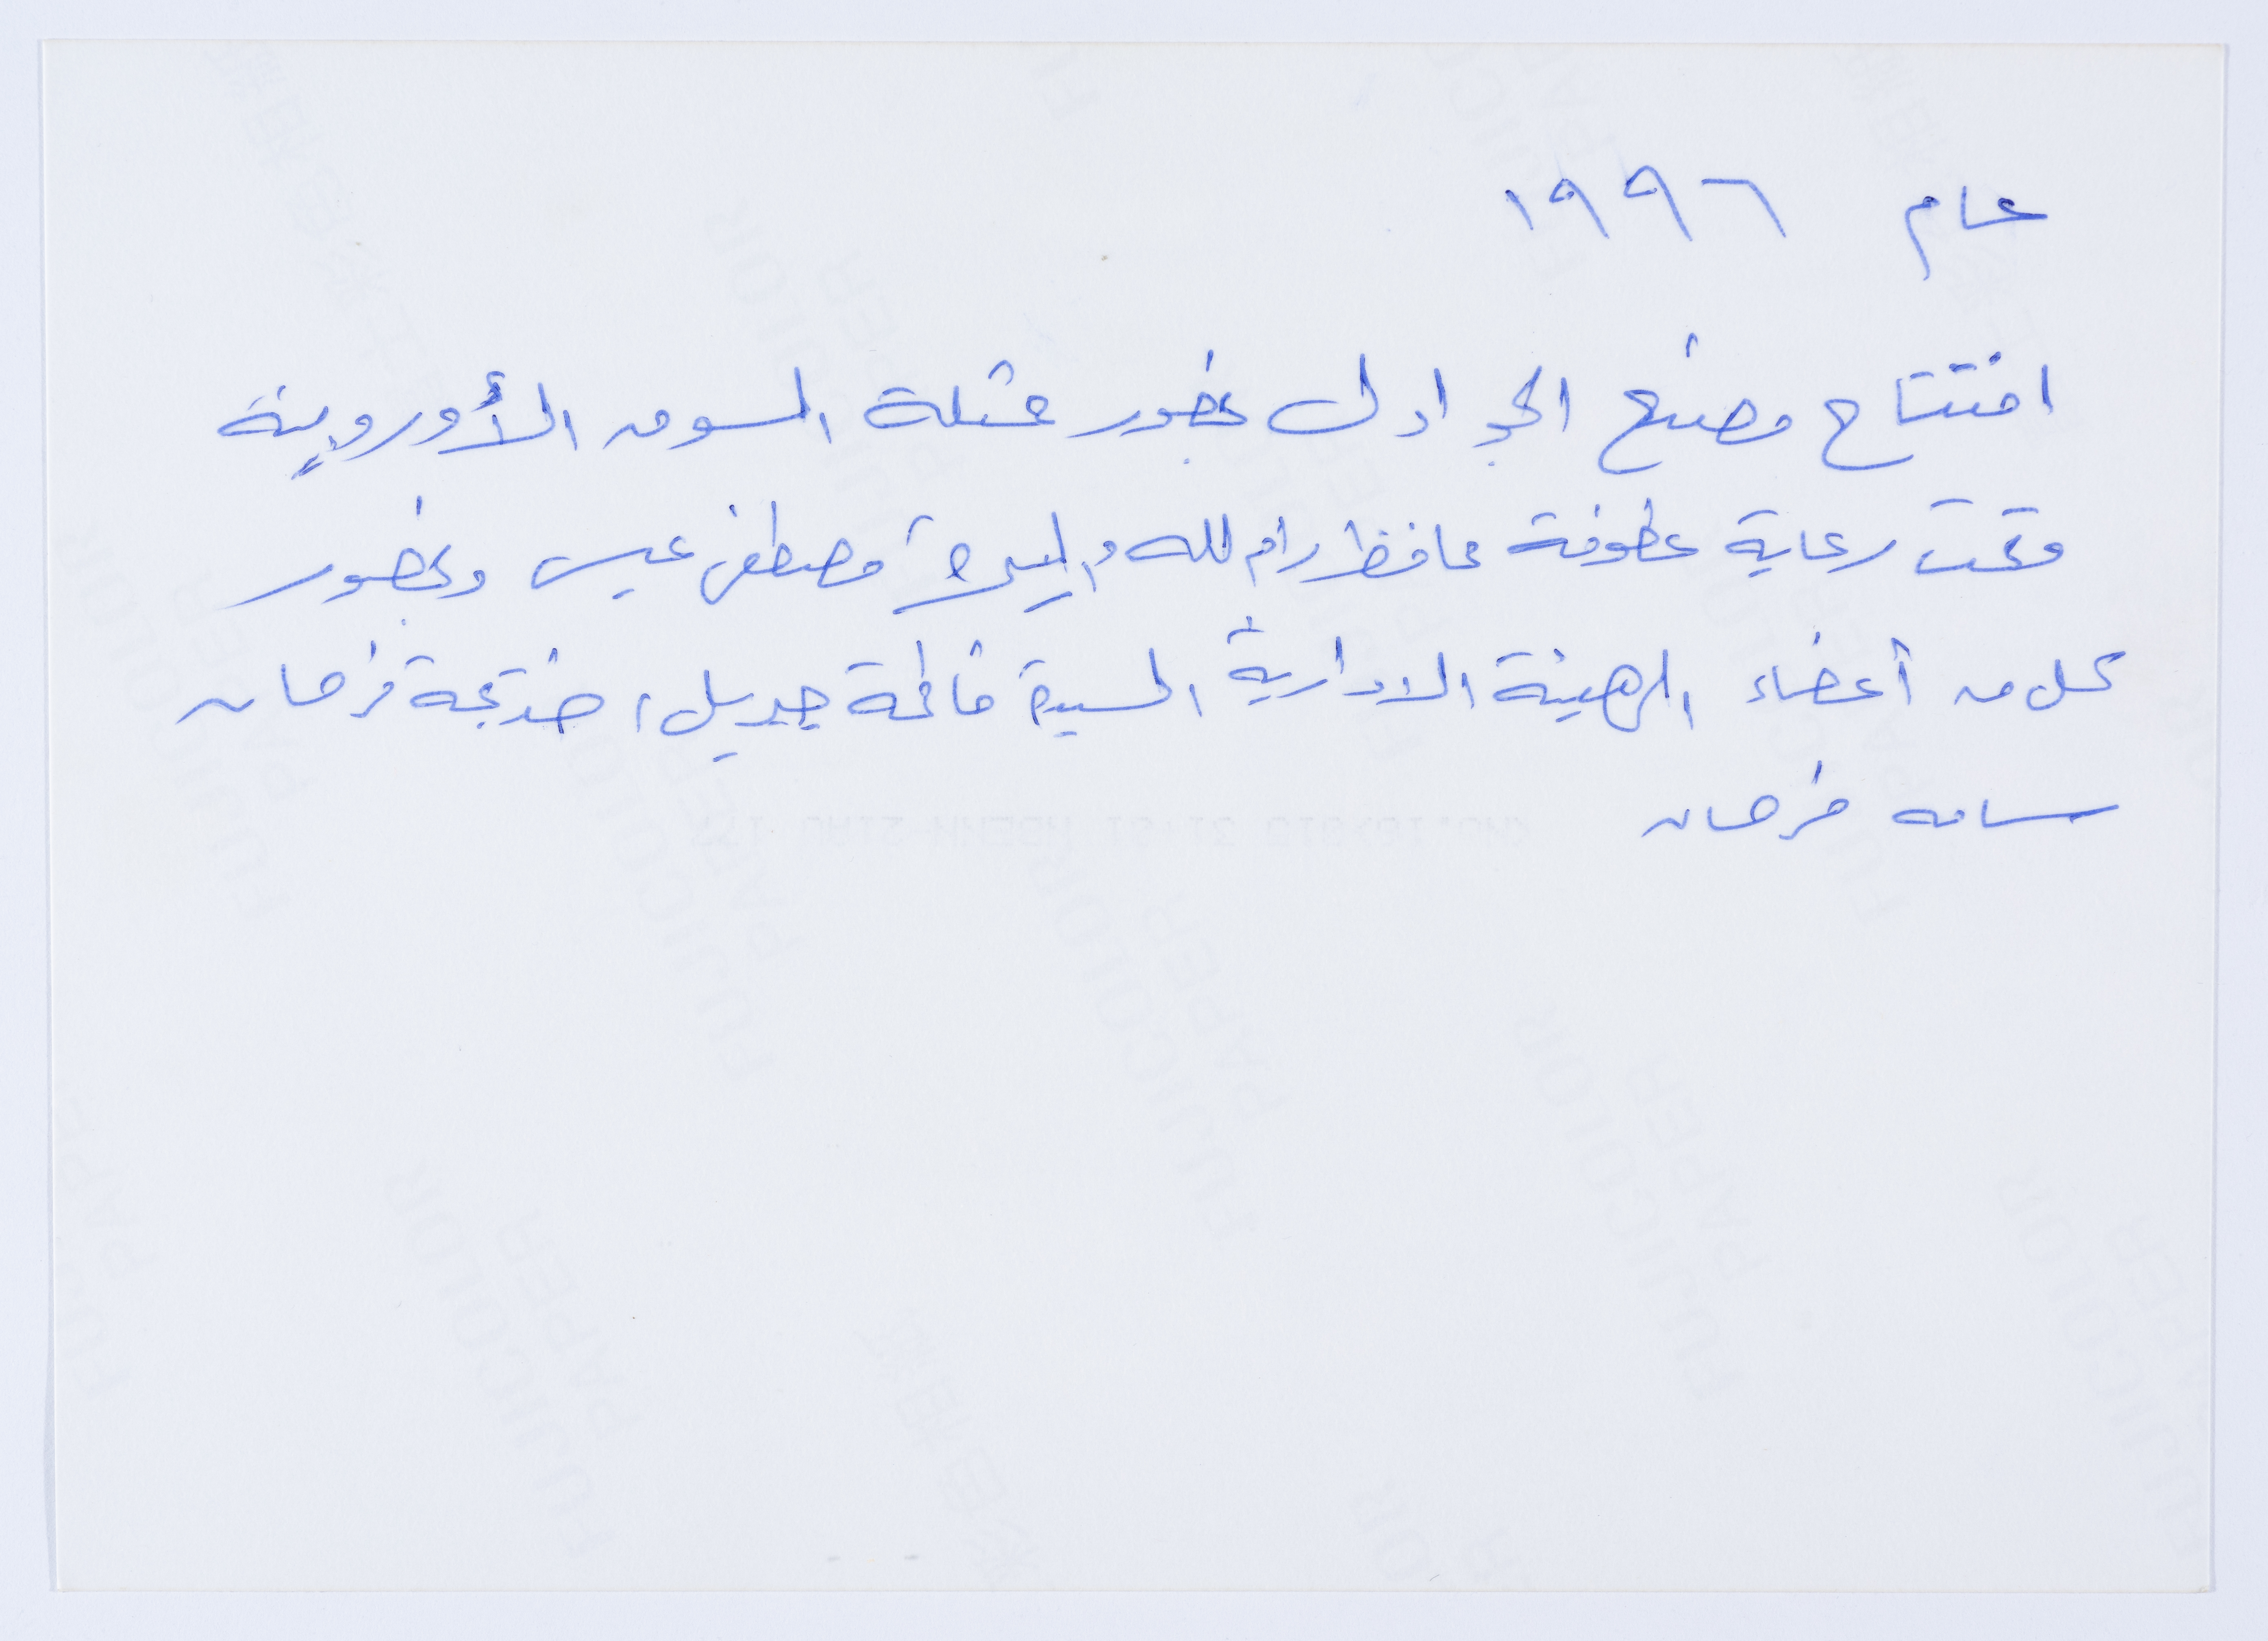 عام ١٩٩٦
افتتاح مصنع الجرادل بحضور ممثلة السوق الأوروبية
وتحت رعاية عطوفة محافظ رام الله والبيرة مصطفى عيسى وبحضور
كل من أعضاء الهيئة الادارية السيدة فاطمة جبريل، خديجة فرحان
سامه فرحان
FUJICOLOR PAPER